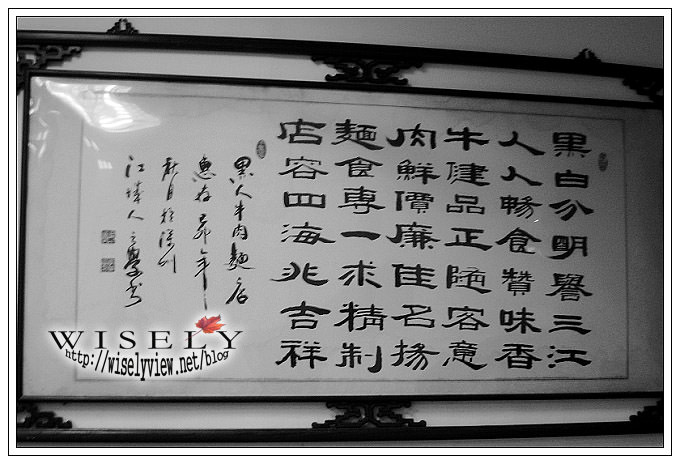 黑白分明譽三江
人人暢食贊味香
牛健品正隨客意
肉鮮價廉佳名揚
麵食專一求精制
店容四海兆吉祥
黑人牛肉麵店
惠存己卯年
月於深圳
江人
WISELY
http://wiselyview.net/blog